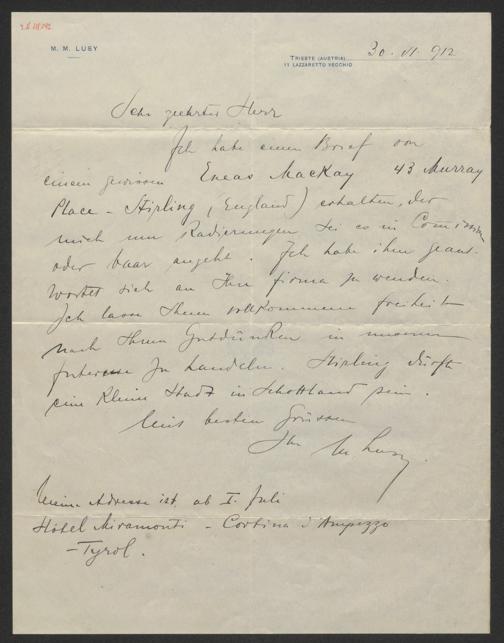 M. M. LUSY
TRIESTE (AUSTRIA)
11 LAZZARETTO VECCHIO
30. VI. 912
Sehr geehrter Herr
Ich habe einen Brief von
einem gewissen Eneas MacKay 43 Murray
Place - Stirling, (England) erhalten, der
mich um Radierungen sei es in Comission
oder baar angeht. Ich habe ihm geant-
wortet sich an Ihre firma zu wenden.
Ich lasse Ihnen vollkommene freiheit
nach Ihrem Gutdünken in unserem
zu handeln. Stirling dürfte
eine kleine Stadt in Schottland sein.
Mit besten Grüssen
Ihr M. Lusy.
Meine Adresse ist ab I. Juli
Hôtel Miramonti - Cortina d'Ampezzo
- Tyrol.